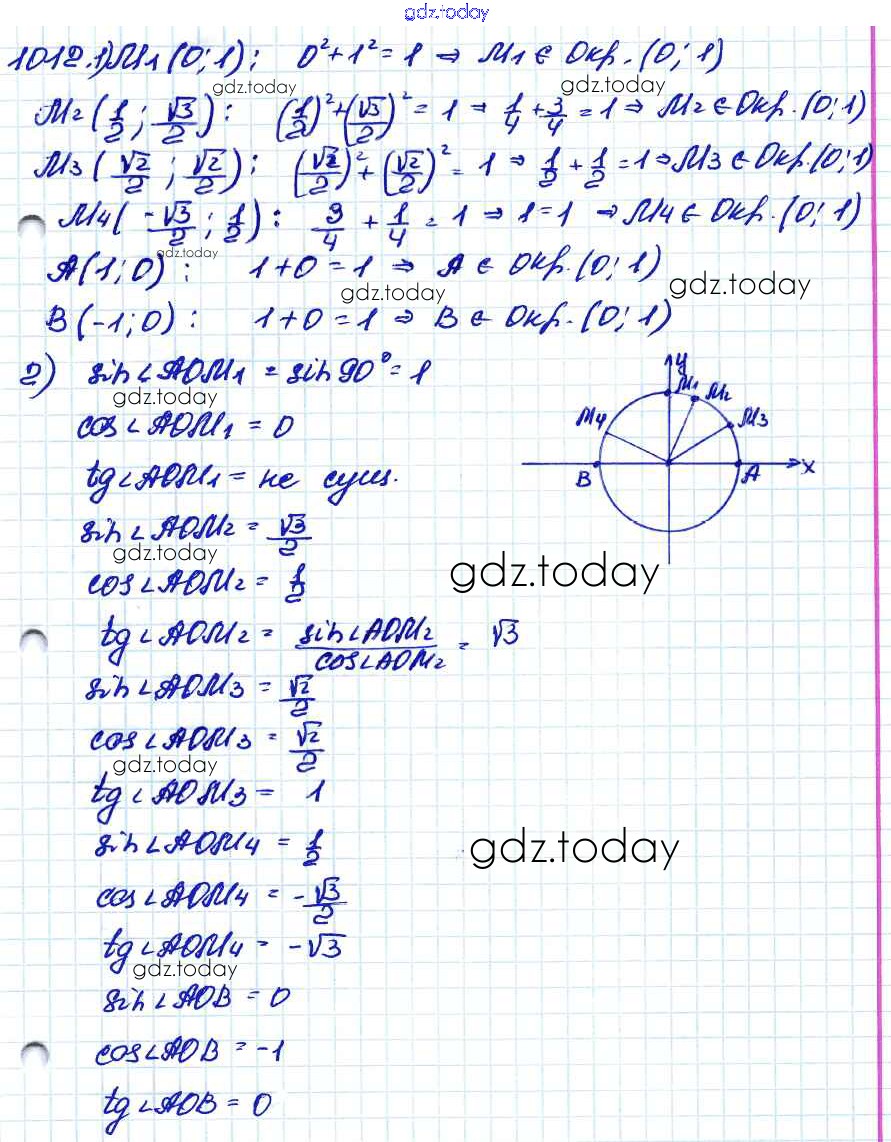 gdz.today
1012.1) M₁(0;1): 0²+1²=1 ⇒ M₁ ∈ Окр.(0;1)
gdz.today gdz.today
M₂(1/2; √3/2): (1/2)²+(√3/2)²=1 ⇒ 1/4+3/4=1 ⇒ M₂ ∈ Окр.(0;1)
M₃(√2/2; √2/2): (√2/2)²+(√2/2)²=1 ⇒ 1/2+1/2=1 ⇒ M₃ ∈ Окр.(0;1)
M₄(-√3/2; 1/2): 3/4+1/4=1 ⇒ 1=1 ⇒ M₄ ∈ Окр.(0;1)
gdz.today
A(1;0): 1+0=1 ⇒ A ∈ Окр.(0;1)
gdz.today gdz.today
B(-1;0): 1+0=1 ⇒ B ∈ Окр.(0;1)
2) sin∠AOM₁ = sin90°=1
gdz.today
cos∠AOM₁ = 0
tg∠AOM₁ = не сущ.
y
M₁ M₂
M₄ M₃
B A x
sin∠AOM₂ = √3/2
gdz.today
gdz.today
cos∠AOM₂ = 1/2
tg∠AOM₂ = sin∠AOM₂/cos∠AOM₂ = √3
sin∠AOM₃ = √2/2
cos∠AOM₃ = √2/2
gdz.today
tg∠AOM₃ = 1
sin∠AOM₄ = 1/2
gdz.today
cos∠AOM₄ = -√3/2
tg∠AOM₄ = -√3
gdz.today
sin∠AOB = 0
cos∠AOB = -1
tg∠AOB = 0